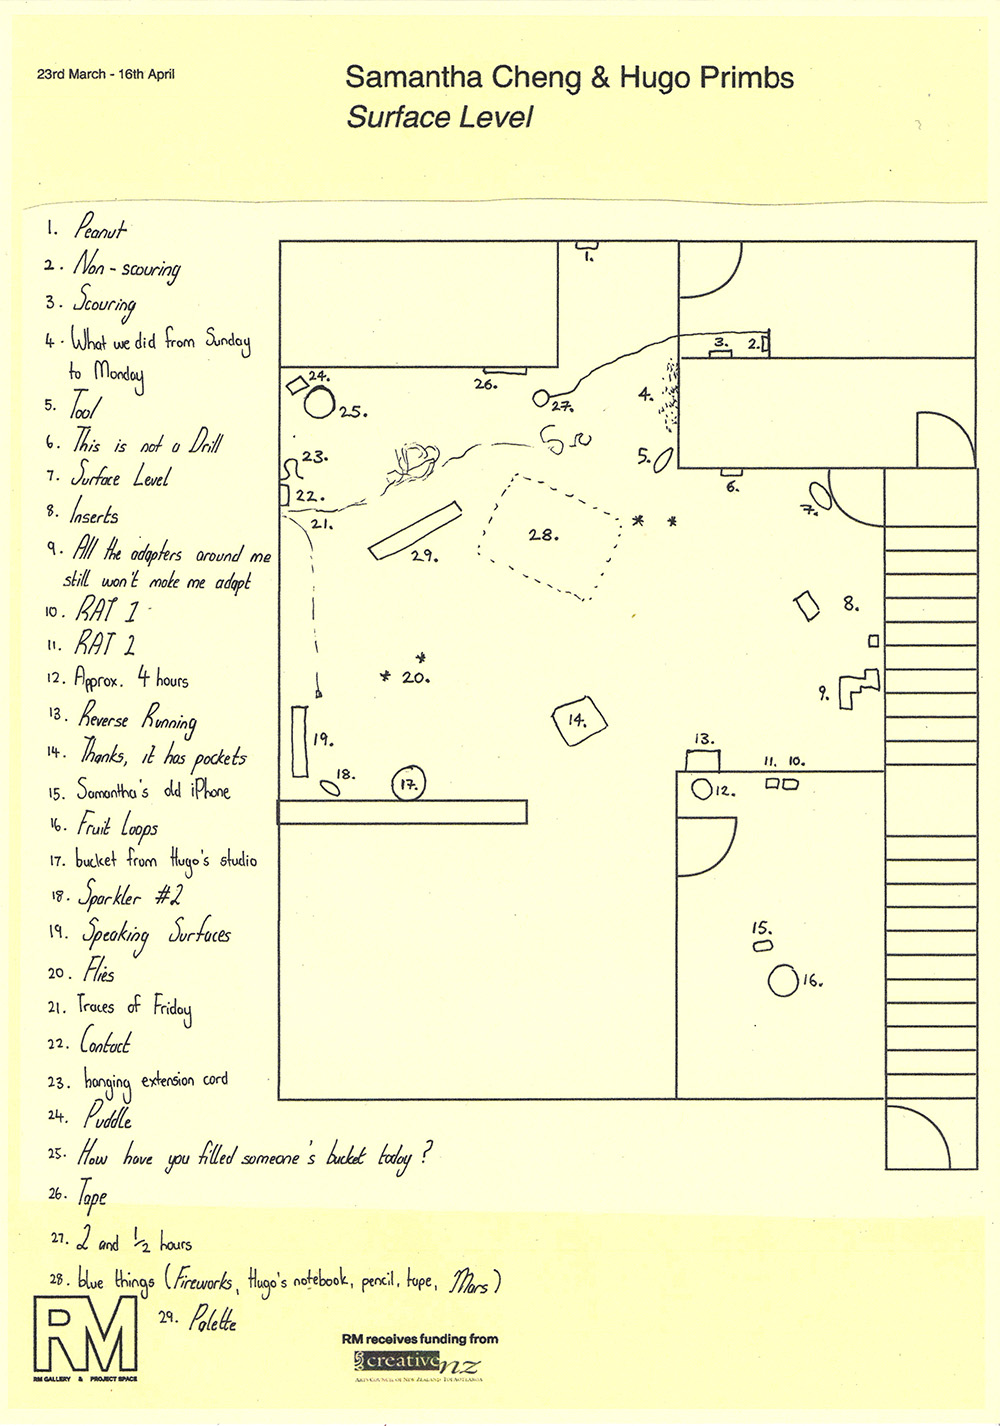 23rd March - 16th April
Samantha Cheng & Hugo Primbs
Surface Level
1. Peanut
2. Non-scouring
3. Scouring
4. What we did from Sunday
to Monday
5. Tool
6. This is not a Drill
7. Surface Level
8. Inserts
9. All the adapters around me
still won't make me adapt
10. RAT 1
11. RAT 2
12. Approx. 4 hours
13. Reverse Running
14. Thanks, it has pockets
15. Samantha's old iPhone
16. Fruit Loops
17. bucket from Hugo's studio
18. Sparkler #2
19. Speaking Surfaces
20. Flies
21. Traces of Friday
22. Contact
23. hanging extension cord
24. Puddle
25. How have you filled someone's bucket today?
26. Tape
27. 2 and 1/2 hours
28. blue things (Fireworks, Hugo's notebook, pencil, tape, Mars)
29. Palette
1.
3. 2.
24.
26.
4.
25.
27.
23.
5.
22.
6.
7.
21.
28.
29.
8.
20.
9.
14.
19.
13.
18.
11. 10.
17.
12.
15.
16.
RM
RM GALLERY & PROJECT SPACE
RM receives funding from
creative nz
ARTS COUNCIL OF NEW ZEALAND TOI AOTEAROA